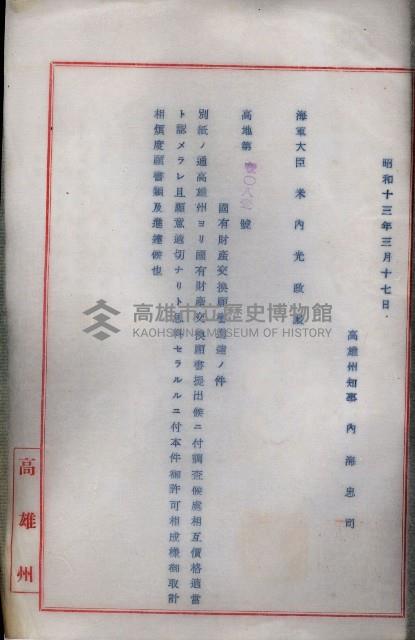 昭和十三年三月十七日
高雄州知事 內海忠司
海軍大臣 米內光政殿
高地第 號
國有財產交換願進達ノ件
別紙ノ通高雄州ヨリ國有財產交換願書提出候ニ付調査候處相互價格適當
ト認メラレ且願意適切ナリト思料セラルルニ付本件御許可相成樣御取計
相煩度願書類及進達候也
高雄州
高雄市立歷史博物館
KAOHSIUNG MUSEUM OF HISTORY